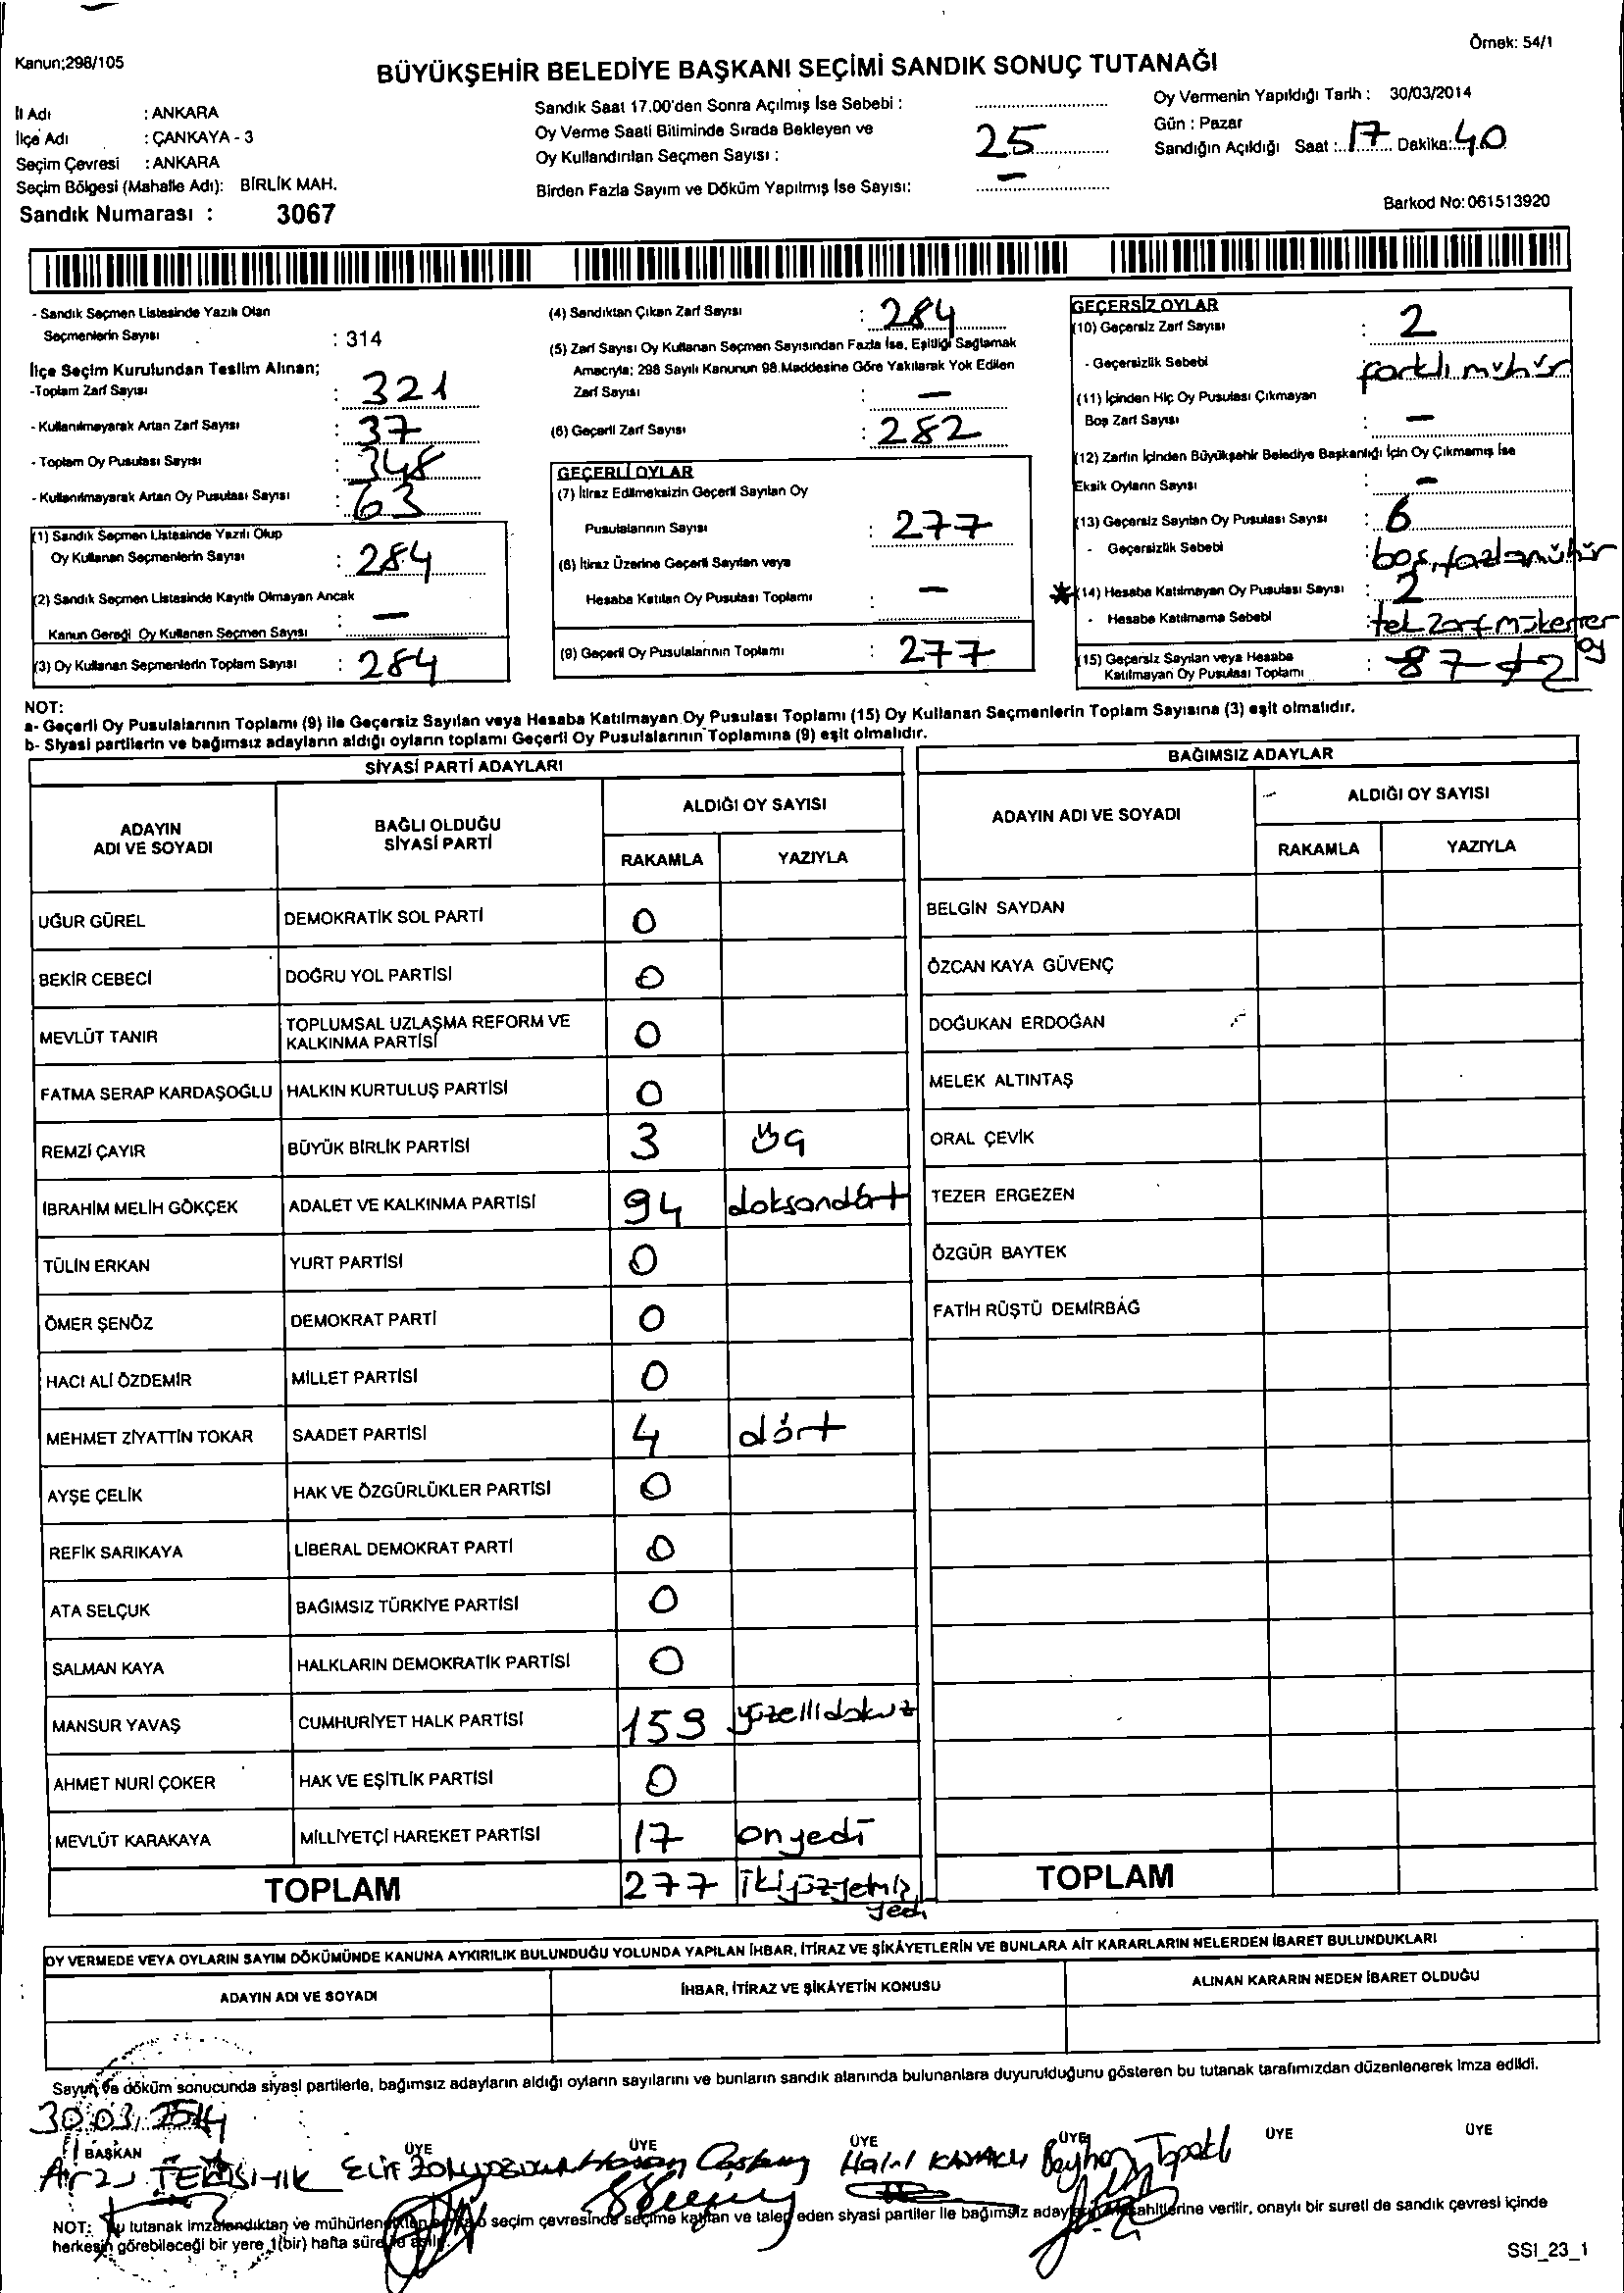 Örnek: 54/1
Kanun;298/105
BÜYÜKŞEHİR BELEDİYE BAŞKANI SEÇİMİ SANDIK SONUÇ TUTANAĞI
İl Adı : ANKARA
İlçe Adı : ÇANKAYA - 3
Seçim Çevresi : ANKARA
Seçim Bölgesi (Mahalle Adı): BİRLİK MAH.
Sandık Numarası : 3067
Sandık Saat 17.00'den Sonra Açılmış İse Sebebi :
Oy Verme Saati Bitiminde Sırada Bekleyen ve
Oy Kullandırılan Seçmen Sayısı : 25
Birden Fazla Sayım ve Döküm Yapılmış İse Sayısı: —
Oy Vermenin Yapıldığı Tarih : 30/03/2014
Gün : Pazar
Sandığın Açıldığı Saat : 17 Dakika: 40
Barkod No: 061513920
- Sandık Seçmen Listesinde Yazılı Olan
Seçmenlerin Sayısı : 314
İlçe Seçim Kurulundan Teslim Alınan;
-Toplam Zarf Sayısı : 321
- Kullanılmayarak Artan Zarf Sayısı : 37
- Toplam Oy Pusulası Sayısı : 348
- Kullanılmayarak Artan Oy Pusulası Sayısı : 63
(1) Sandık Seçmen Listesinde Yazılı Olup
Oy Kullanan Seçmenlerin Sayısı : 284
(2) Sandık Seçmen Listesinde Kayıtlı Olmayan Ancak
Kanun Gereği Oy Kullanan Seçmen Sayısı : —
(3) Oy Kullanan Seçmenlerin Toplam Sayısı : 284
(4) Sandıktan Çıkan Zarf Sayısı : 284
(5) Zarf Sayısı Oy Kullanan Seçmen Sayısından Fazla İse, Eşitliği Sağlamak
Amacıyla; 298 Sayılı Kanunun 98.Maddesine Göre Yakılarak Yok Edilen
Zarf Sayısı : —
(6) Geçerli Zarf Sayısı : 282
GEÇERLİ OYLAR
(7) İtiraz Edilmeksizin Geçerli Sayılan Oy
Pusulalarının Sayısı : 277
(8) İtiraz Üzerine Geçerli Sayılan veya
Hesaba Katılan Oy Pusulası Toplamı : —
(9) Geçerli Oy Pusulalarının Toplamı : 277
GEÇERSİZ OYLAR
(10) Geçersiz Zarf Sayısı : 2
- Geçersizlik Sebebi farklı mühür
(11) İçinden Hiç Oy Pusulası Çıkmayan
Boş Zarf Sayısı : —
(12) Zarfın İçinden Büyükşehir Belediye Başkanlığı İçin Oy Çıkmamış İse
Eksik Oyların Sayısı : —
(13) Geçersiz Sayılan Oy Pusulası Sayısı : 6
- Geçersizlik Sebebi : boş, fazla mühür
* (14) Hesaba Katılmayan Oy Pusulası Sayısı : 2
- Hesaba Katılmama Sebebi : tek zarf mükerrer oy
(15) Geçersiz Sayılan veya Hesaba
Katılmayan Oy Pusulası Toplamı : 87+2
NOT:
a- Geçerli Oy Pusulalarının Toplamı (9) ile Geçersiz Sayılan veya Hesaba Katılmayan Oy Pusulası Toplamı (15) Oy Kullanan Seçmenlerin Toplam Sayısına (3) eşit olmalıdır.
b- Siyasi partilerin ve bağımsız adayların aldığı oyların toplamı Geçerli Oy Pusulalarının Toplamına (9) eşit olmalıdır.
SİYASİ PARTİ ADAYLARI
ADAYIN ADI VE SOYADI
BAĞLI OLDUĞU SİYASİ PARTİ
ALDIĞI OY SAYISI
RAKAMLA YAZIYLA
UĞUR GÜREL DEMOKRATİK SOL PARTİ 0
BEKİR CEBECİ DOĞRU YOL PARTİSİ 0
MEVLÜT TANIR TOPLUMSAL UZLAŞMA REFORM VE KALKINMA PARTİSİ 0
FATMA SERAP KARDAŞOĞLU HALKIN KURTULUŞ PARTİSİ 0
REMZİ ÇAYIR BÜYÜK BİRLİK PARTİSİ 3 üç
İBRAHİM MELİH GÖKÇEK ADALET VE KALKINMA PARTİSİ 94 doksandört
TÜLİN ERKAN YURT PARTİSİ 0
ÖMER ŞENÖZ DEMOKRAT PARTİ 0
HACI ALİ ÖZDEMİR MİLLET PARTİSİ 0
MEHMET ZİYATTİN TOKAR SAADET PARTİSİ 4 dört
AYŞE ÇELİK HAK VE ÖZGÜRLÜKLER PARTİSİ 0
REFİK SARIKAYA LİBERAL DEMOKRAT PARTİ 0
ATA SELÇUK BAĞIMSIZ TÜRKİYE PARTİSİ 0
SALMAN KAYA HALKLARIN DEMOKRATİK PARTİSİ 0
MANSUR YAVAŞ CUMHURİYET HALK PARTİSİ 159 yüzellidokuz
AHMET NURİ ÇOKER HAK VE EŞİTLİK PARTİSİ 0
MEVLÜT KARAKAYA MİLLİYETÇİ HAREKET PARTİSİ 17 onyedi
TOPLAM 277 ikiyüzyetmiş yedi
BAĞIMSIZ ADAYLAR
ADAYIN ADI VE SOYADI
ALDIĞI OY SAYISI
RAKAMLA YAZIYLA
BELGİN SAYDAN
ÖZCAN KAYA GÜVENÇ
DOĞUKAN ERDOĞAN
MELEK ALTINTAŞ
ORAL ÇEVİK
TEZER ERGEZEN
ÖZGÜR BAYTEK
FATİH RÜŞTÜ DEMİRBAĞ
TOPLAM
OY VERMEDE VEYA OYLARIN SAYIM DÖKÜMÜNDE KANUNA AYKIRILIK BULUNDUĞU YOLUNDA YAPILAN İHBAR, İTİRAZ VE ŞİKÂYETLERİN VE BUNLARA AİT KARARLARIN NELERDEN İBARET BULUNDUKLARI
ADAYIN ADI VE SOYADI
İHBAR, İTİRAZ VE ŞİKÂYETİN KONUSU
ALINAN KARARIN NEDEN İBARET OLDUĞU
Sayım ve döküm sonucunda siyasi partilerle, bağımsız adayların aldığı oyların sayılarını ve bunların sandık alanında bulunanlara duyurulduğunu gösteren bu tutanak tarafımızdan düzenlenerek imza edildi.
30.03.2014
BAŞKAN ÜYE ÜYE ÜYE ÜYE ÜYE ÜYE
Arzu Elif Hasan Halil Beyhan
NOT: Bu tutanak imzalandıktan ve mühürlendikten seçim çevresinde seçime katılan ve talep eden siyasi partiler ile bağımsız aday verilir, onaylı bir sureti de sandık çevresi içinde
herkesin görebileceği bir yere 1(bir) hafta süre ile asılır.
SSI_23_1